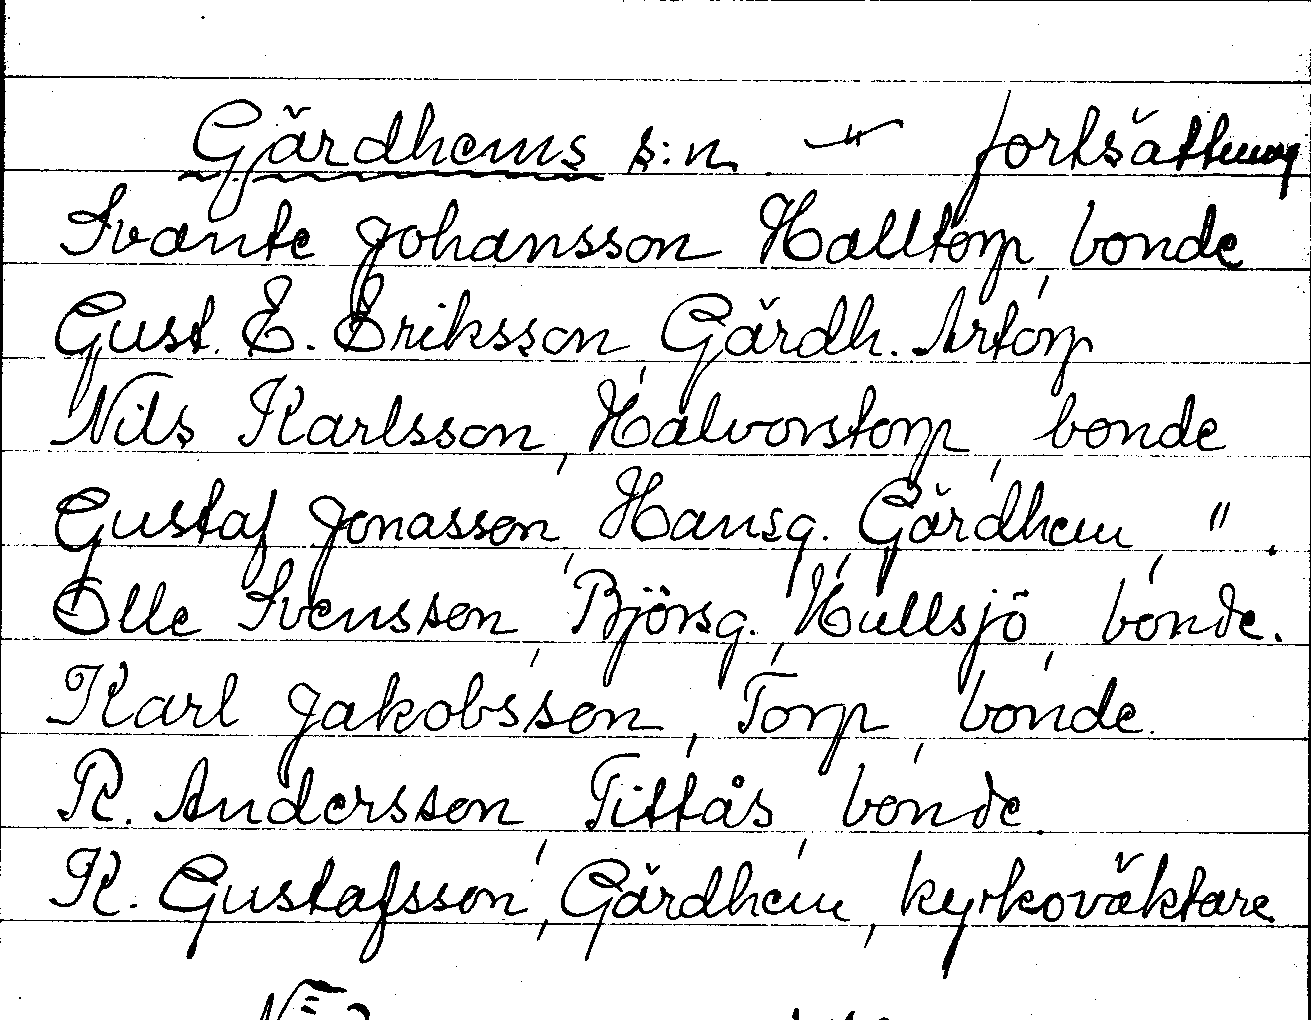 Gärdhems s:n. — " — fortsättning
Svante Johansson Halltorp, bonde
Gust. E. Eriksson, Gärdh. Artorp
Nils Karlsson, Halvorstorp, bonde
Gustaf Jonasson, Hansg. Gärdhem, ".
Olle Svensson, Björsg. Hullsjö, bonde.
Karl Jakobsson, Torp, bonde.
R. Andersson, Tittås, bonde.
K. Gustafsson, Gärdhem, kyrkoväktare